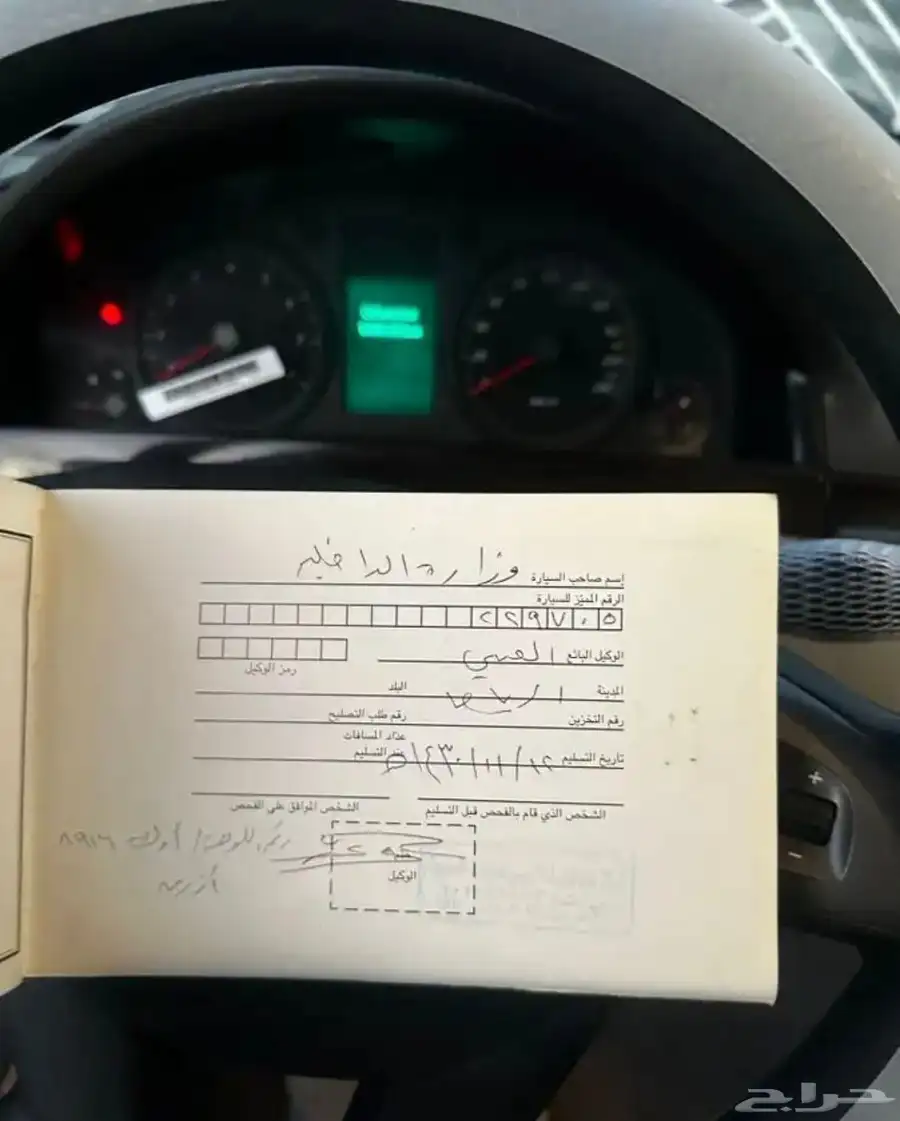 إسم صاحب السيارة وزارة الداخلية
الرقم المميّز للسيارة
٢٢٩٧٠٥
الوكيل البائع العيسي
رمز الوكيل
المدينة الرياض البلد
رقم التخزين رقم طلب التصليح
عداد المسافات
تاريخ التسليم ١٢/١١/١٤٣٠هـ عند التسليم
الشخص الذي قام بالفحص قبل التسليم الشخص الموافق على الفحص
ختم
الوكيل
٨٩١٦
أزرق
+
-
حراج